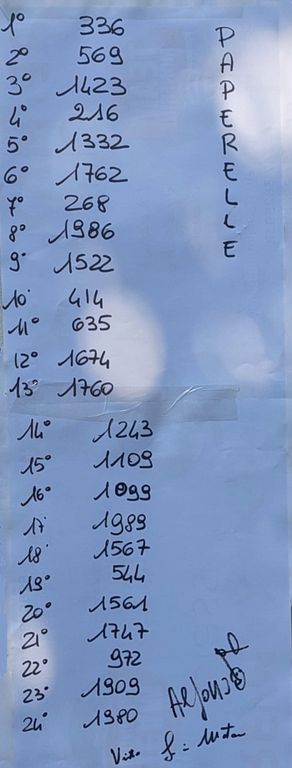 1° 336
2° 569
3° 1423
4° 216
5° 1332
6° 1762
7° 268
8° 1986
9° 1522
10° 414
11° 635
12° 1674
13° 1760
14° 1243
15° 1109
16° 1099
17° 1989
18° 1567
19° 544
20° 1561
21° 1747
22° 972
23° 1909
24° 1980
PAPERELLE
Visto